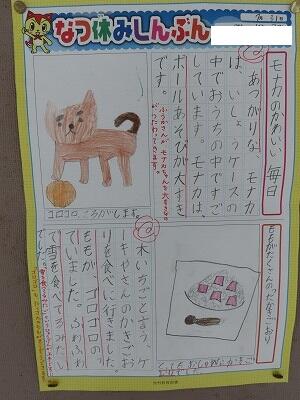 なつ休みしんぶん
7月31日
モナカのかわいい毎日
あつがりな、モナカ
は、いしょうケースの
中でおうちの中ですご
しています。モナカは、
ボールあそびが大すき
です。
ふうかさんが モナカちゃんを大すきな
が、つたわってきます。
コロコロ、ころがします。
ももがたくさんのったかきごおり
木いちごと言う、ケ
ーキやさんのかきごお
りを食べに行きました。
ももが、ゴロゴロのっ
ていました。ふわふわ
で雪を食べてるみたい
でした。